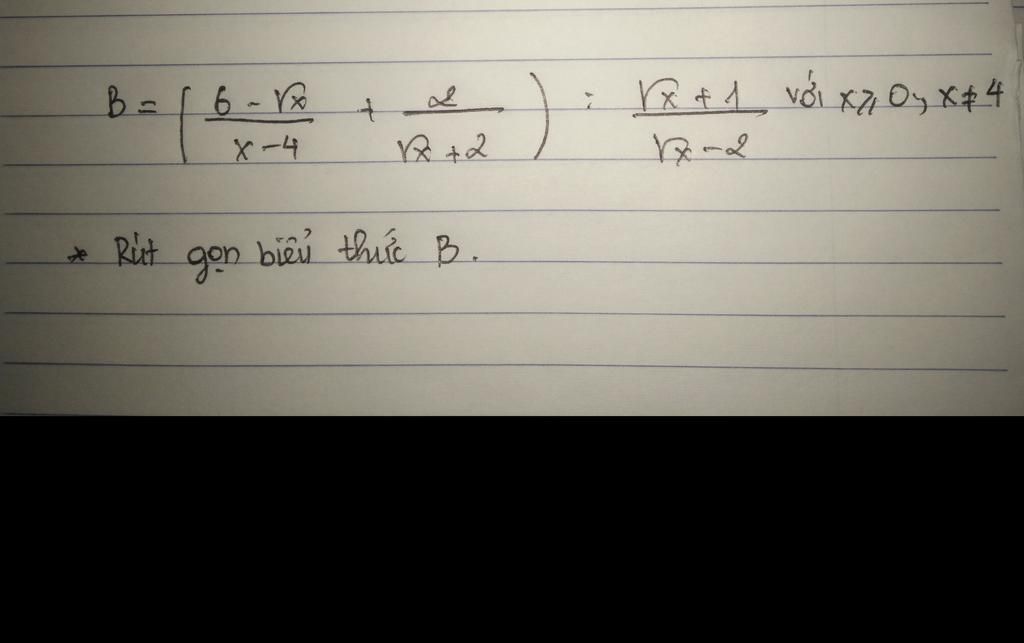 B = ( (6 - √x)/(x - 4) + 2/(√x + 2) ) : (√x + 1)/(√x - 2) với x ≥ 0, x ≠ 4
* Rút gọn biểu thức B.